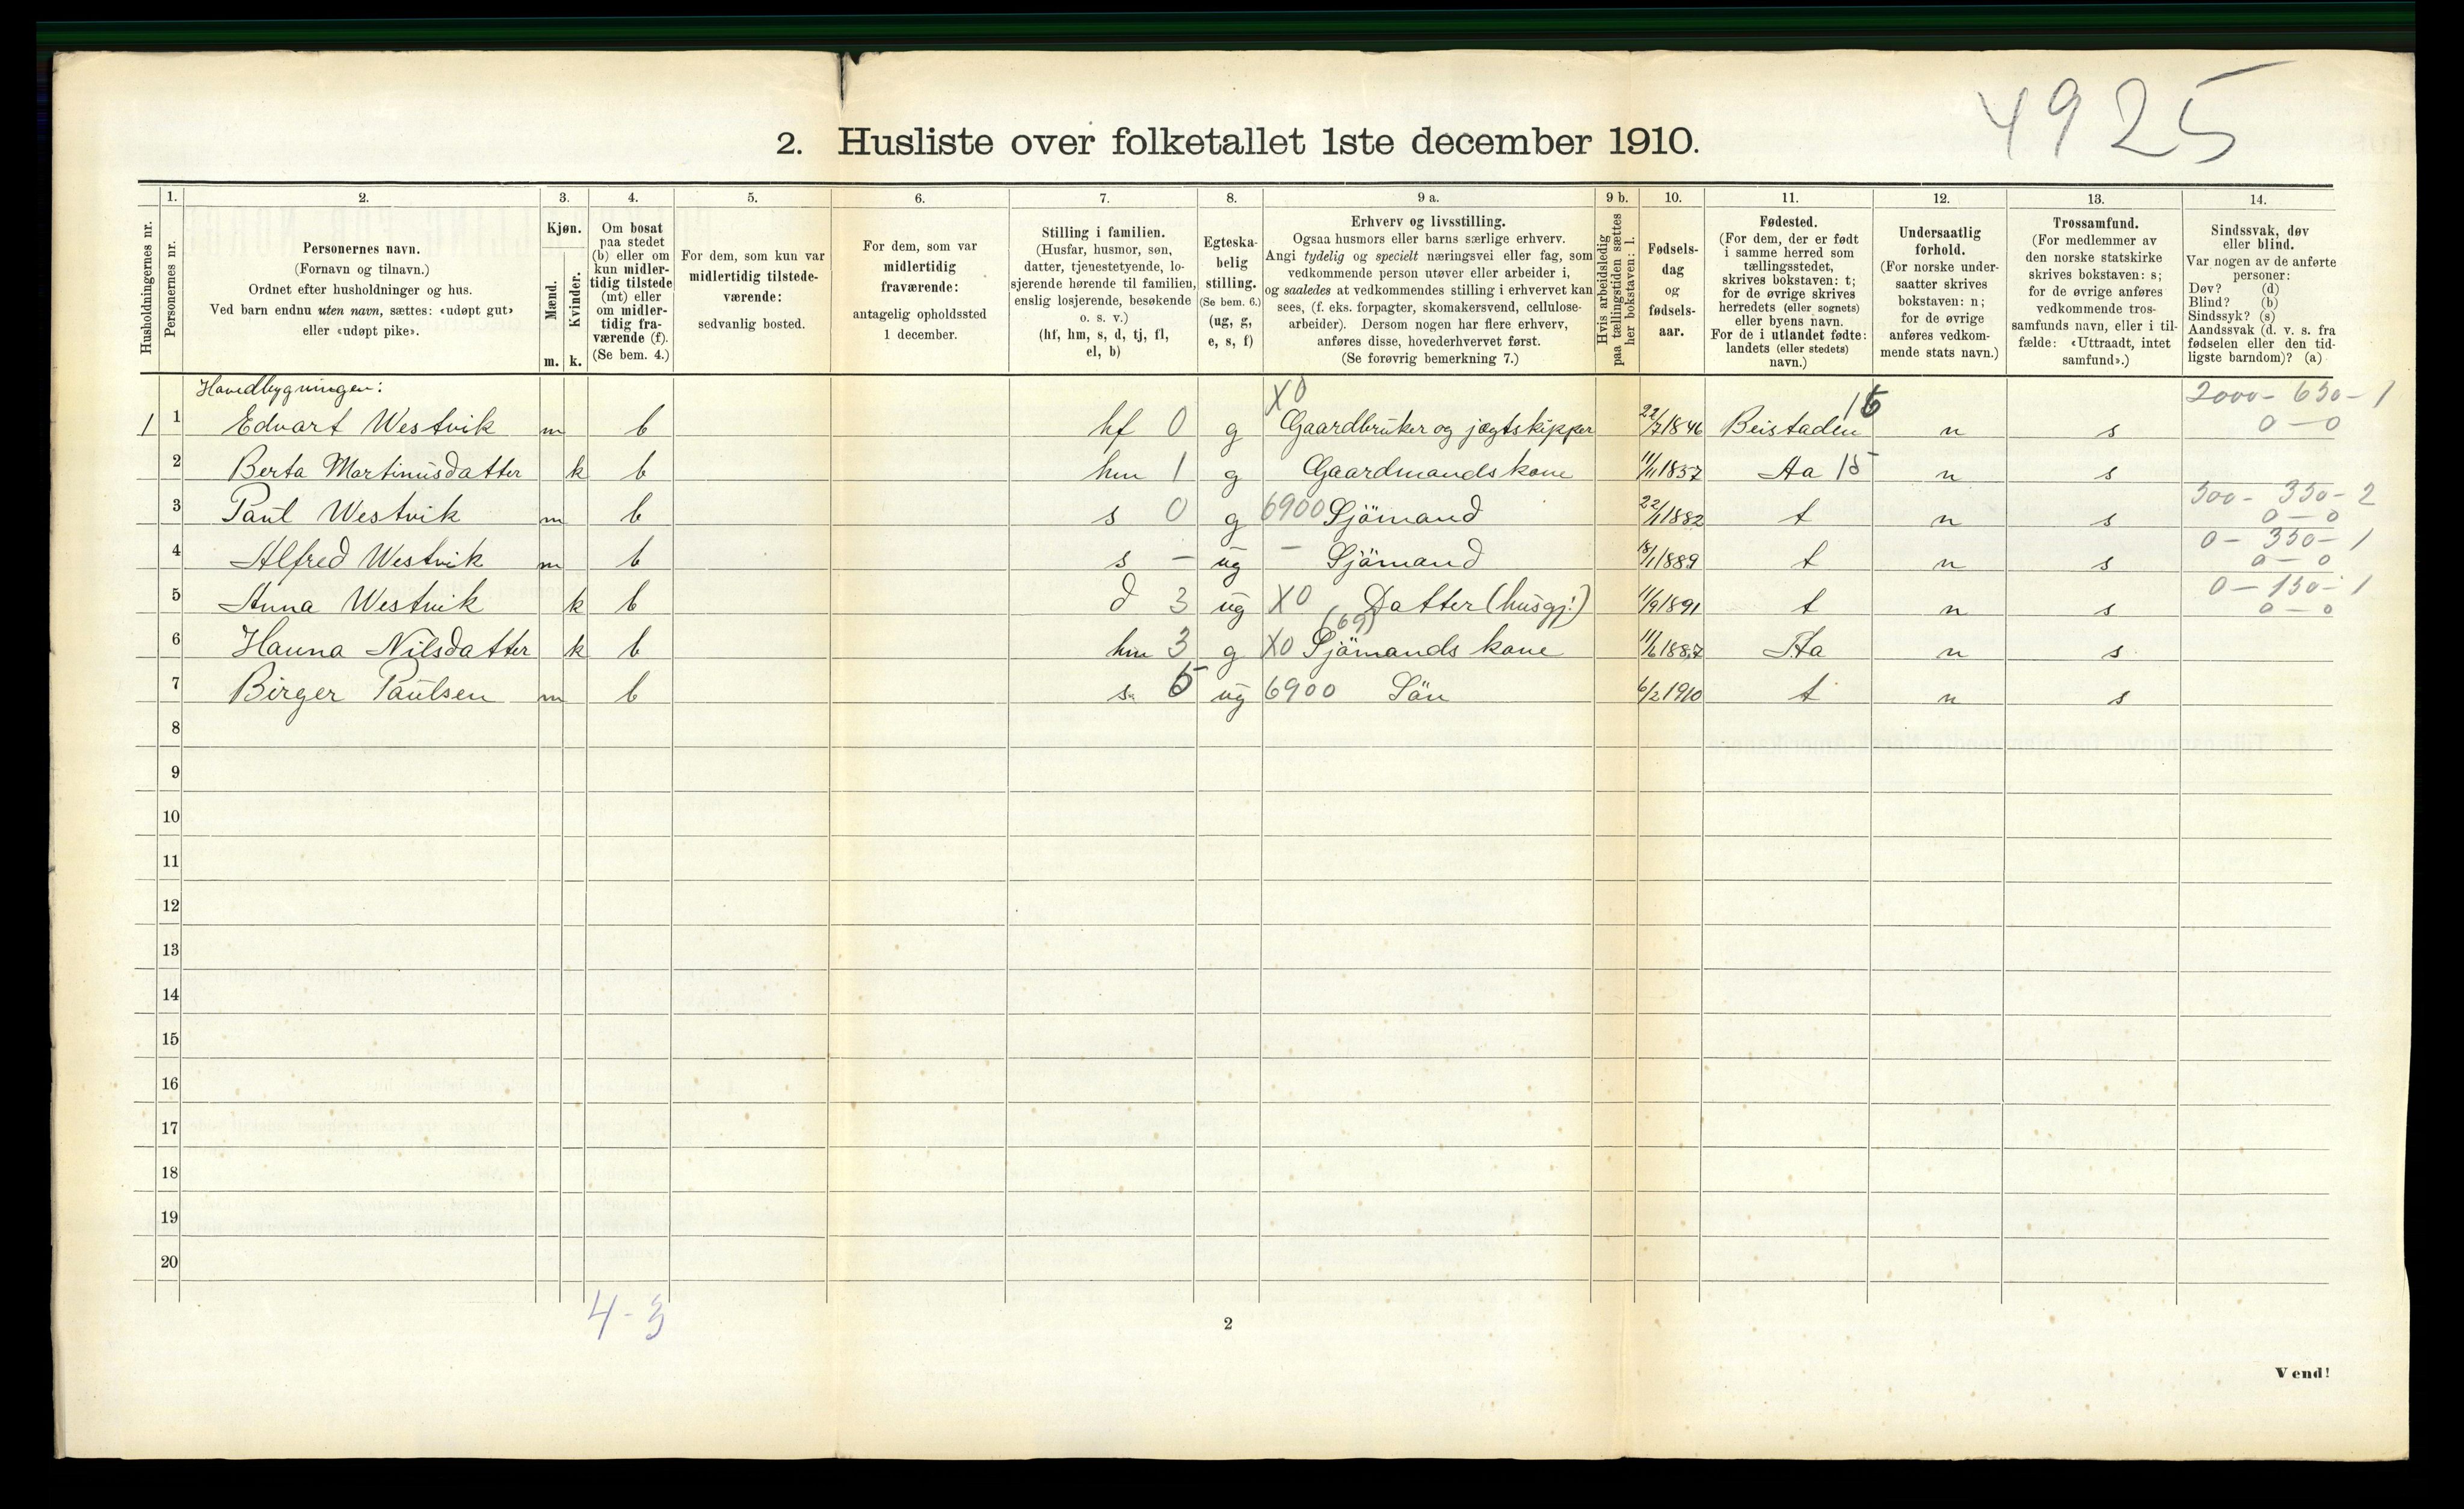 4925
2. Husliste over folketallet 1ste december 1910.
Husholdningernes nr.
1.
Personernes nr.
2.
Personernes navn.
(Fornavn og tilnavn.)
Ordnet efter husholdninger og hus.
Ved barn endnu uten navn, sættes: «udøpt gut»
eller «udøpt pike».
3.
Kjøn.
Mænd.
Kvinder.
m. k.
4.
Om bosat
paa stedet
(b) eller om
kun midler-
tidig tilstede
(mt) eller
om midler-
tidig fra-
værende (f).
(Se bem. 4.)
5.
For dem, som kun var
midlertidig tilstede-
værende:
sedvanlig bosted.
6.
For dem, som var
midlertidig
fraværende:
antagelig opholdssted
1 december.
7.
Stilling i familien.
(Husfar, husmor, søn,
datter, tjenestetyende, lo-
sjerende hørende til familien,
enslig losjerende, besøkende
o. s. v.)
(hf, hm, s, d, tj, fl,
el, b)
8.
Egteska-
belig
stilling.
(Se bem. 6.)
(ug, g,
e, s, f)
9 a.
Erhverv og livsstilling.
Ogsaa husmors eller barns særlige erhverv.
Angi tydelig og specielt næringsvei eller fag, som
vedkommende person utøver eller arbeider i,
og saaledes at vedkommendes stilling i erhvervet kan
sees, (f. eks. forpagter, skomakersvend, cellulose-
arbeider). Dersom nogen har flere erhverv,
anføres disse, hovederhvervet først.
(Se forøvrig bemerkning 7.)
9 b.
Hvis arbeidsledig
paa tællingstiden sættes
her bokstaven: l.
10.
Fødsels-
dag
og
fødsels-
aar.
11.
Fødested.
(For dem, der er født
i samme herred som
tællingsstedet,
skrives bokstaven: t;
for de øvrige skrives
herredets (eller sognets)
eller byens navn.
For de i utlandet fødte:
landets (eller stedets)
navn.)
12.
Undersaatlig
forhold.
(For norske under-
saatter skrives
bokstaven: n;
for de øvrige
anføres vedkom-
mende stats navn.)
13.
Trossamfund.
(For medlemmer av
den norske statskirke
skrives bokstaven: s;
for de øvrige anføres
vedkommende tros-
samfunds navn, eller i til-
fælde: «Uttraadt, intet
samfund».)
14.
Sindssvak, døv
eller blind.
Var nogen av de anførte
personer:
Døv? (d)
Blind? (b)
Sindssyk? (s)
Aandssvak (d. v. s. fra
fødselen eller den tid-
ligste barndom)? (a)
Hovedbygningen:
X0 15 2000 - 650 - 1
1 1 Edvart Westvik m b hf 0 g Gaardbruker og jægtskipper 22/7 1846 Beistaden n s 0 - 0
2 Berta Martinusdatter k b hm 1 g Gaardmandskone 11/11 1857 Aa 15 n s
500 - 350 - 2
3 Paul Westvik m b s 0 g 6900 Sjömand 22/1 1882 t n s 0 - 0
0 - 350 - 1
4 Alfred Westvik m b s - ug - Sjömand 18/1 1889 t n s 0 - 0
0 - 150 - 1
5 Anna Westvik k b d 3 ug X0 Datter (husgj.) 11/9 1891 t n s 0 - 0
(69)
6 Hanna Nilsdatter k b hm 3 g X0 Sjömands kone 11/6 1887 Aa n s
7 Birger Paulsen m b s 5 ug 6900 Sön 6/2 1910 t n s
8
9
10
11
12
13
14
15
16
17
18
19
20
4-3
2
Vend!